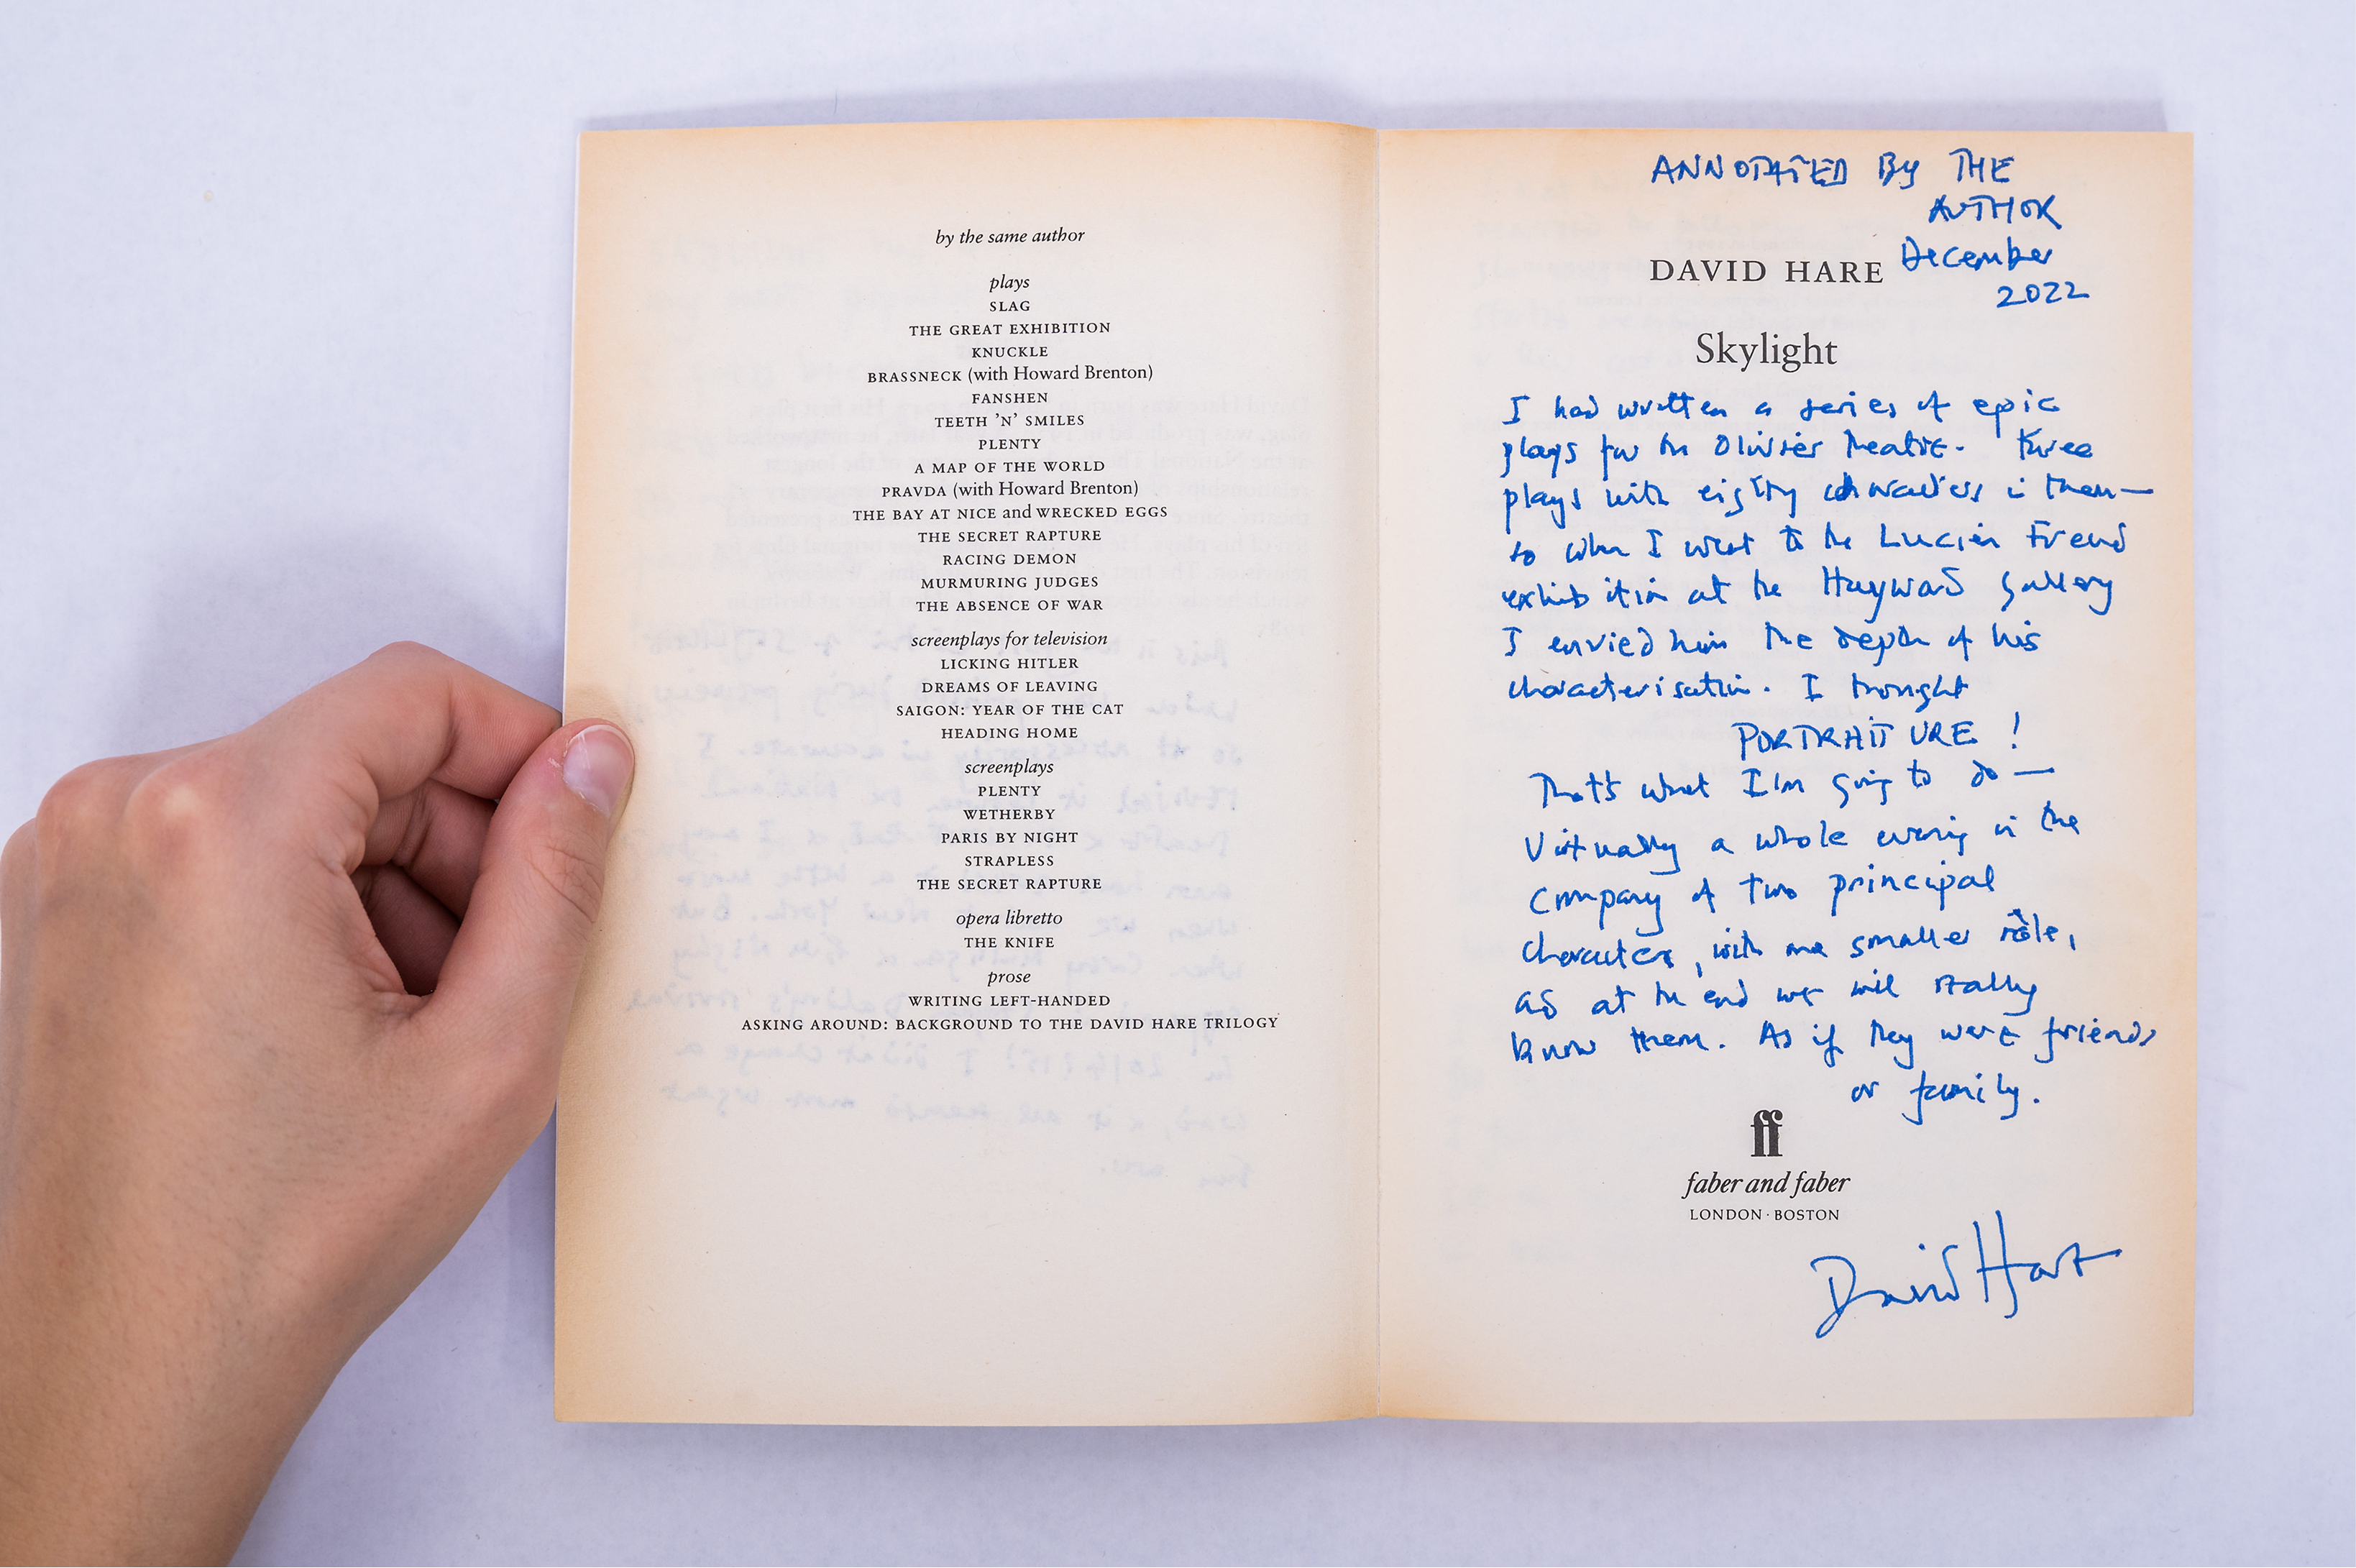 by the same author
plays
SLAG
THE GREAT EXHIBITION
KNUCKLE
BRASSNECK (with Howard Brenton)
FANSHEN
TEETH 'N' SMILES
PLENTY
A MAP OF THE WORLD
PRAVDA (with Howard Brenton)
THE BAY AT NICE and WRECKED EGGS
THE SECRET RAPTURE
RACING DEMON
MURMURING JUDGES
THE ABSENCE OF WAR
screenplays for television
LICKING HITLER
DREAMS OF LEAVING
SAIGON: YEAR OF THE CAT
HEADING HOME
screenplays
PLENTY
WETHERBY
PARIS BY NIGHT
STRAPLESS
THE SECRET RAPTURE
opera libretto
THE KNIFE
prose
WRITING LEFT-HANDED
ASKING AROUND: BACKGROUND TO THE DAVID HARE TRILOGY
ANNOTATED By THE
AUTHOR
December
2022
DAVID HARE
Skylight
I had written a series of epic
plays for the Olivier Theatre. Three
plays with eighty characters in them —
so when I went to the Lucien Freud
exhibition at the Hayward Gallery
I envied him the depth of his
characterisation. I thought
PORTRAITURE!
That's what I'm going to do —
Virtually a whole evening in the
company of two principal
characters, with one smaller rôle,
as at the end we will really
know them. As if they were friends
or family.
ff
faber and faber
LONDON · BOSTON
David Hare